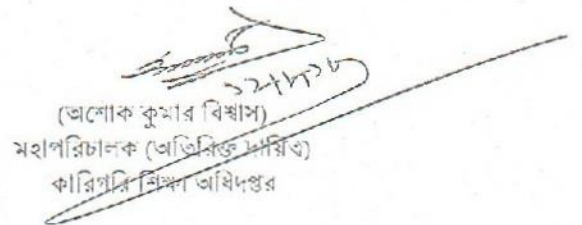 (অশোক কুমার বিশ্বাস)
মহাপরিচালক (অতিরিক্ত দায়িত্ব)
কারিগরি শিক্ষা অধিদপ্তর